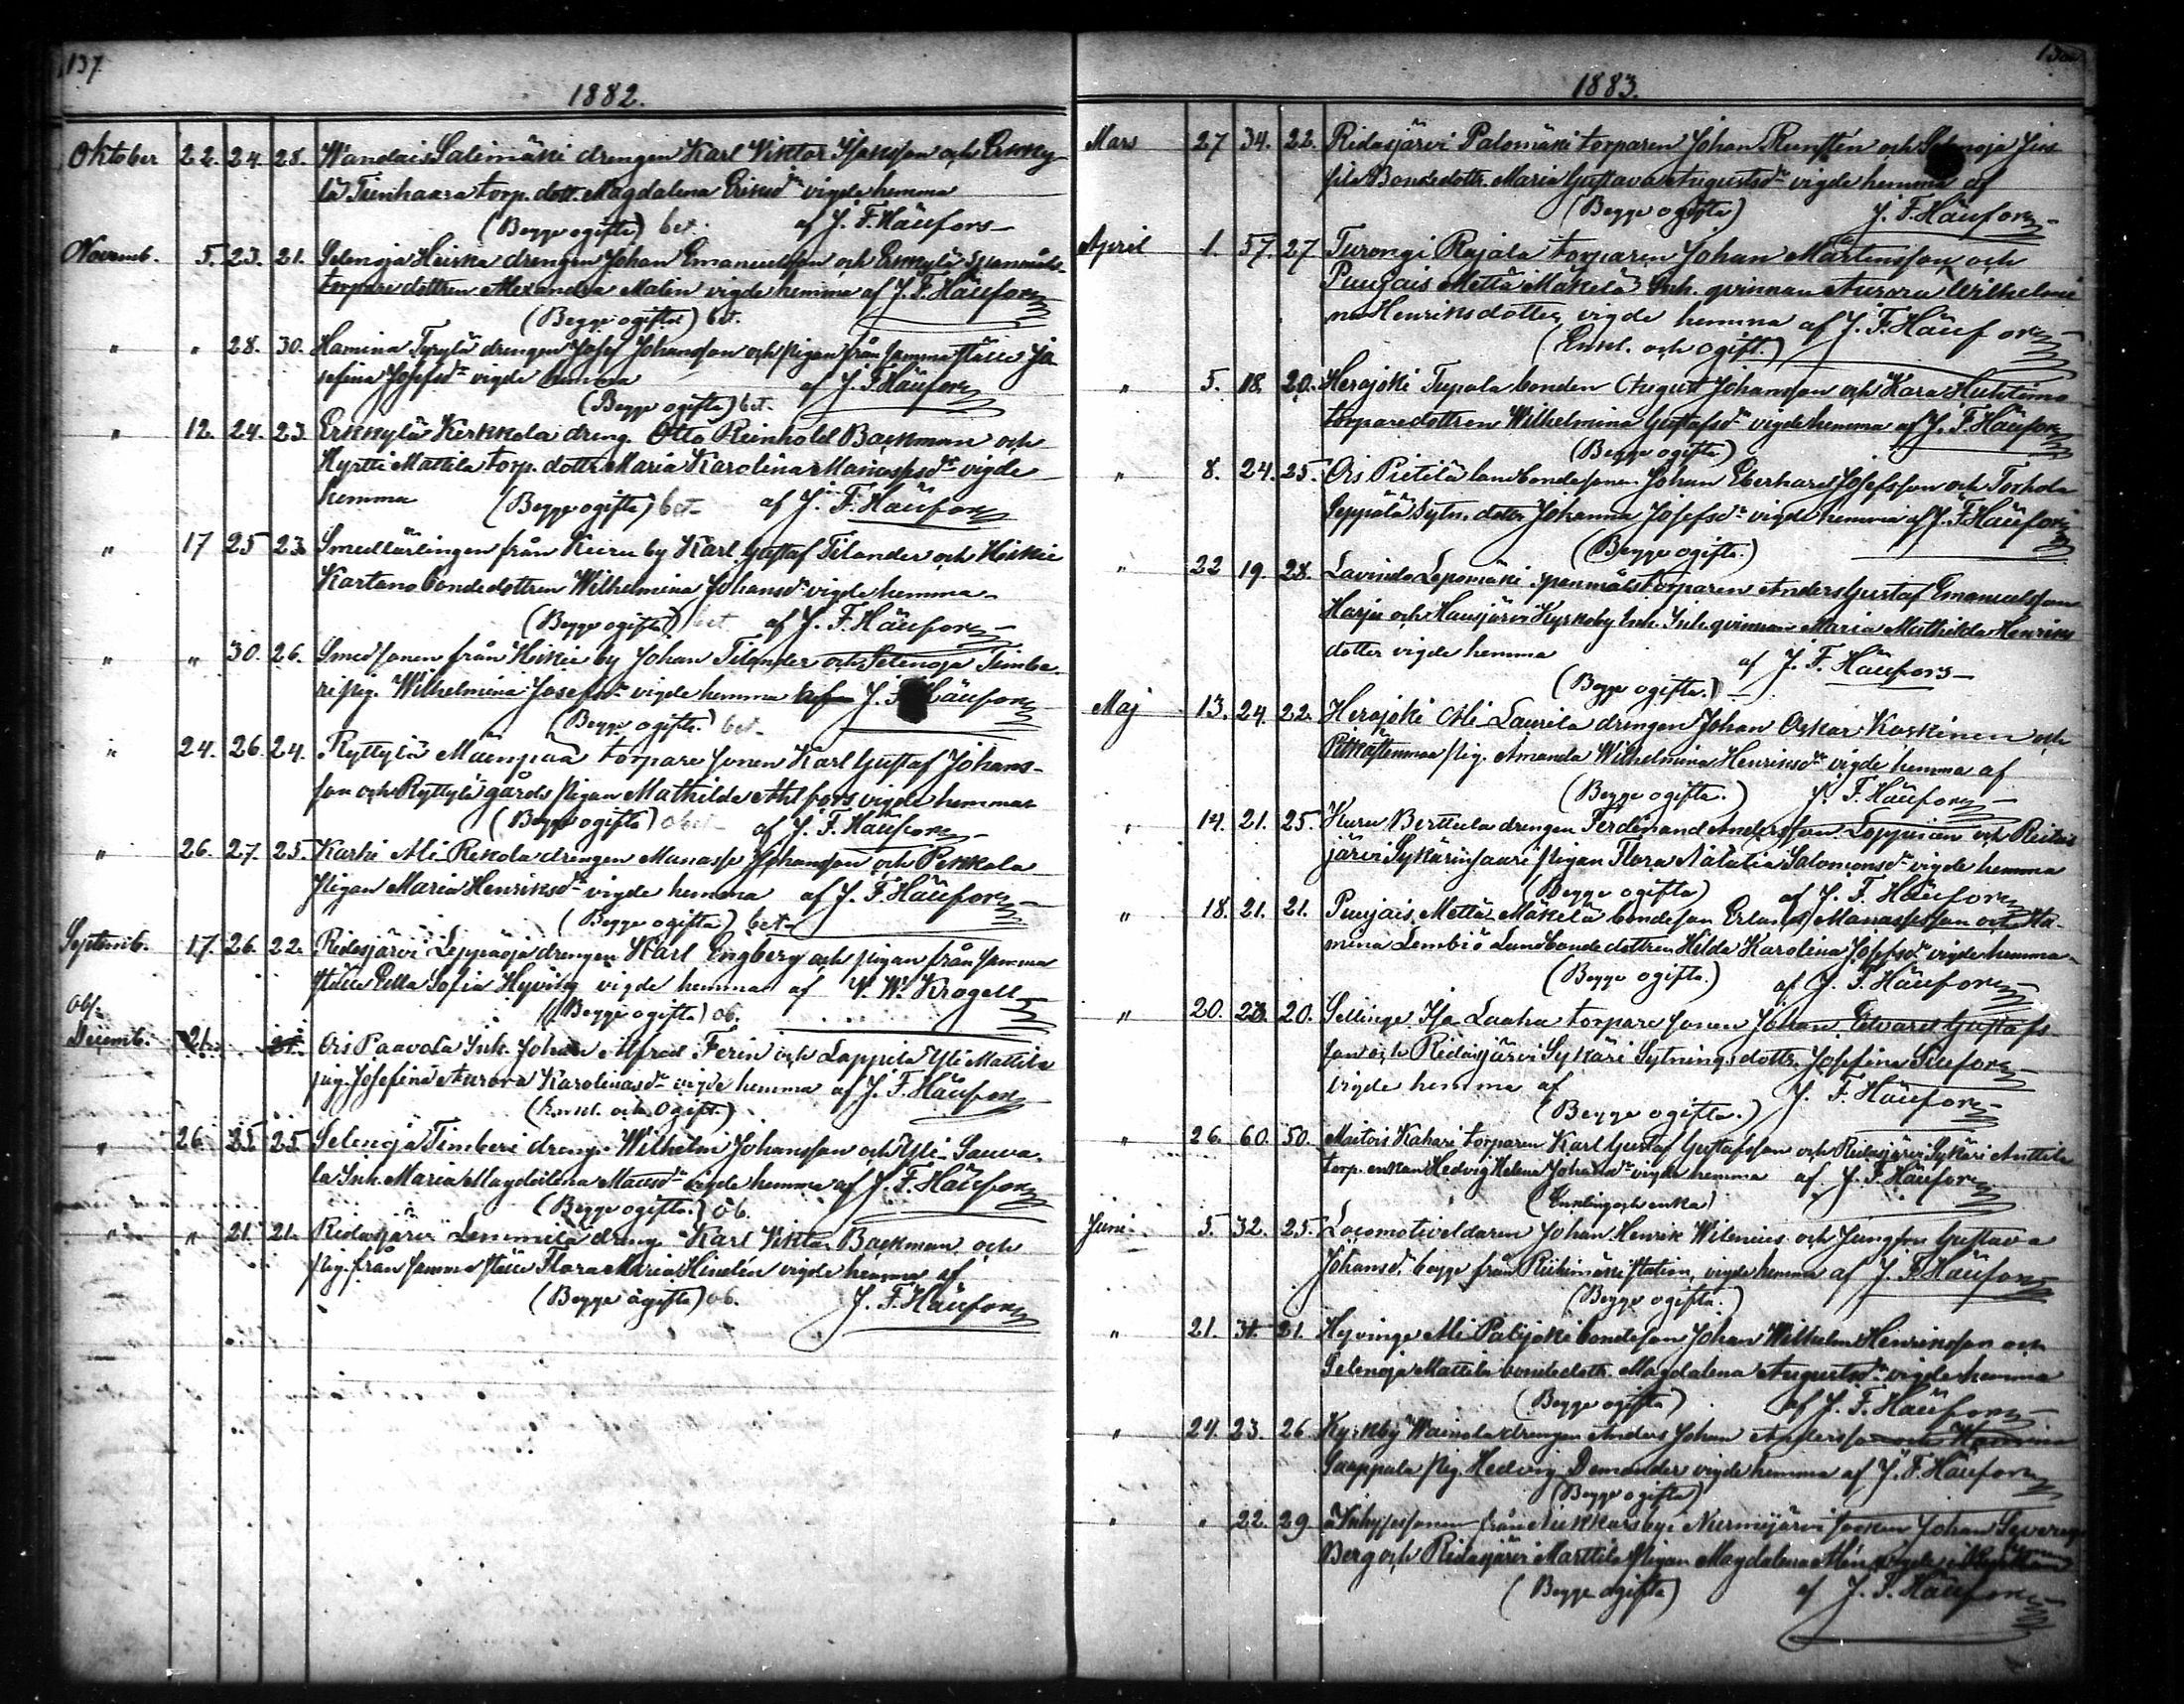 137.
1882.
Oktober 22. 24. 28. Wandais Salimäki drengen Karl Viktor Isaksson och Erkky-
lä Tienhaara torp. dott. Magdalena Eriksdr vigde hemma
(Begge ogifta) bet. af J. F. Häufors
Novemb. 5. 23. 21. Selenoja Heiska drengen Johan Emanuelsson och Erkylä Spanmåls-
torpare dottren Alexandra Malin vigde hemma af J. F. Häufors
(Begge ogifta) bet.
" " 28. 30. Hamina Tyrylä drengen Josef Johansson och pigan från samma ställe Jo
sefina Josefsdr vigde hemma af J. F. Häufors
(Begge ogifta) bet.
" 12. 24. 23. Erkkylä Kerkkola dreng. Otto Reinhold Backman och
Hyrtti Mattila torp. dottr Maria Karolina Manassesdr vigde
hemma (Begge ogifta) bet. af J. F. Häufors
" 17 25 23 Smedlärlingen från Kuru by Karl Gustaf Tilander och Hikie
Kartano bondedottren Wilhelmina Johansdr vigde hemma
(Begge ogifta) bet. af J. F. Häufors
" " 30. 26. Smedsonen från Hikie by Johan Tilander och Selenoja Timbe
ri pig. Wilhelmina Josefsdr vigde hemma af J. F. Häufors
(Begge ogifta) bet.
" 24. 26. 24. Ryttylä Mäenpää torpare sonen Karl Gustaf Johans-
son och Ryttylä gårds pigan Mathilda Ahlfors vigde hemma
(Begge ogifta) af J. F. Häufors
" 26. 27. 25. Karhi Ali Rekola drengen Manasse Johansson och Pekkola
pigan Maria Henriksdr vigde hemma af J. F. Häufors
(Begge ogifta) bet.
Septemb. 17. 26. 22. Ridasjärvi Leppäoja drengen Karl Engberg och pigan från samma
ställe Sofia Hyving vigde hemma af W. Krogell
(Begge ogifta) ob.
ob/.
Decemb. 21. 21. Ois Paavola Inh. Johan Alfred Ferin och Lappila Yli Mattila
pig. Josefina Aurora Karolinasdr vigde hemma af J. F. Häufors
(Enkl. och Ogift.)
" 26. 25. 25 Selenoja Timberi dreng. Wilhelm Johansson och Yli-Sauva
la Inh. Maria Magdalena Matsdr vigde hemma af J. F. Häufors
(Begge ogifta.) ob.
" " 21. 21. Ridasjärvi Lemmilä dreng Karl Viktor Backman och
pig. från samma ställe Flora Maria vigde hemma af
(Begge ogifta) ob. J. F. Häufors
1883.
Mars 27 34. 22. Ridasjärvi Palomäki torparen Johan Runstén och Selenoja Jus
sila Bondedottr. Maria Gustava Augustsdr vigde hemma af
(Begge ogifta) J. F. Häufors
April 1. 57. 27. Turongi Rajala torparen Johan Mårtensson och
Puujais Mettä Mäkelä Inh. qvinnan Aurora Wilhelmi
na Henriksdotter vigde hemma af J. F. Häufors
(Enkl. och ogift.)
" 5. 18. 20. Herajoki Tupala bonden August Johansson och Kara Huhtimo
torparedottren Wilhelmina Gustafsdr vigde hemma af J. F. Häufors
(Begge ogifta)
" 8. 24. 25. Ois Pietilä landbondesonen Johan Eberhard Josefsson och Torhola
Seppälä Sytn. dottr Johanna Josefsdr vigde hemma af J. F. Häufors
(Begge ogifta.)
" 22 19. 28. Lavinda Lepomäki spanmålstorparen Anders Gustaf Emanuelsson
Harju och Hausjärvi Kyrkoby Inh. qvinnan Maria Mathilda Henriks
dotter vigde hemma af J. F. Häufors
(Begge ogifta.)
Maj 13. 24. 22. Herajoki Ali Laurila drengen Johan Oskar Koskinen och
pig. Amanda Wilhelmina Henriksdr vigde hemma af
(Begge ogifta.) J. F. Häufors
" 14. 21. 25. Kuru Berttula drengen Ferdinand Andersson Loppinen och Ridas
järvi Sykärinsaari pigan Flora Natalia Salomonsdr vigde hemma
(Begge ogifta) af J. F. Häufors
" 18. 21. 21. Puujais Mettä Mäkelä bondeson Erland Manassesson och Ha-
mina Lembiö Landbonde dottren Hilda Karolina Josefsdr vigde hemma
(Begge ogifta.) af J. F. Häufors
" 20. 23. 20. Sellinge Iso Laaha torpare sonen Johan Edvard Gustafs
son och Ridasjärvi Sykäri Sytnings dottr. Josefina
vigde hemma af J. F. Häufors
(Begge ogifta.)
" 26. 60. 50. Maitois Kahari torparen Karl Gustaf Gustafsson och Ridasjärvi Sykäri Anttila
torp. enkan Hedvig Helena Johansdr vigde hemma af J. F. Häufors
(Enkling och enka)
Juni 5. 32. 25. Locomotiveldaren Johan Henrik Wilenius och Jungfru Gustava
Johansdr begge från Riihimäki station, vigde hemma af J. F. Häufors
(Begge ogifta.)
" 21. 31. 21. Hyvinge Ali Palojoki bondeson Johan Wilhelm Henriksson och
Selenoja Mattila bondedottr. Magdalena Augustsdr vigde hemma
(Begge ogifta) af J. F. Häufors
" 24. 23. 26 Kyrkby Wainola drengen Anders Johan Andersson
Saappala pig. Hedvig Demander vigde hemma af J. F. Häufors
(Begge ogifta)
" " 22. 29 från Nukkarsby i Nurmijärvi socken Johan
Berg och Ridasjärvi Marttila pigan Magdalena vigde
(Begge ogifta) af J. F. Häufors